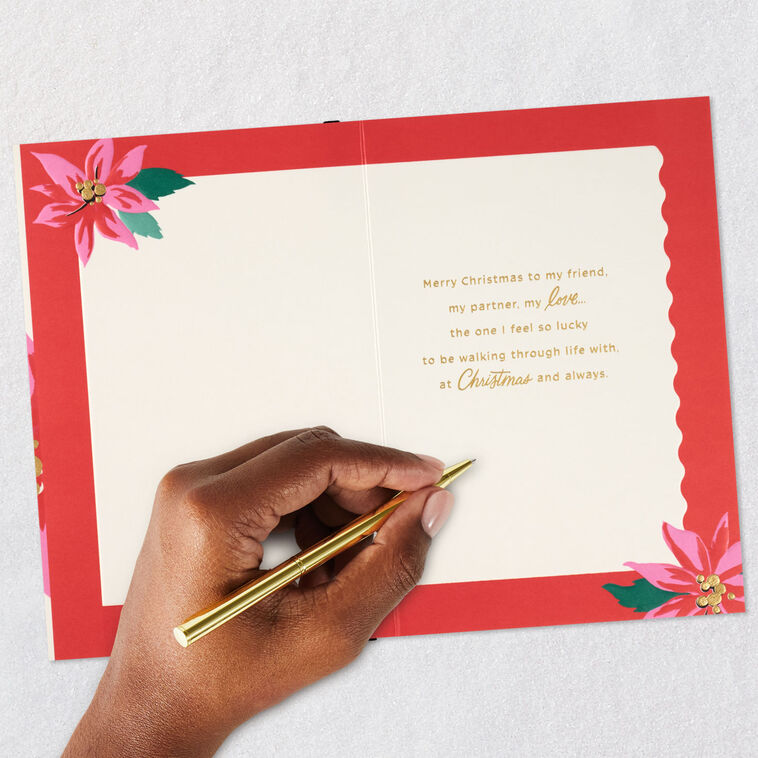 Merry Christmas to my friend,
my partner, my love...
the one I feel so lucky
to be walking through life with,
at Christmas and always.